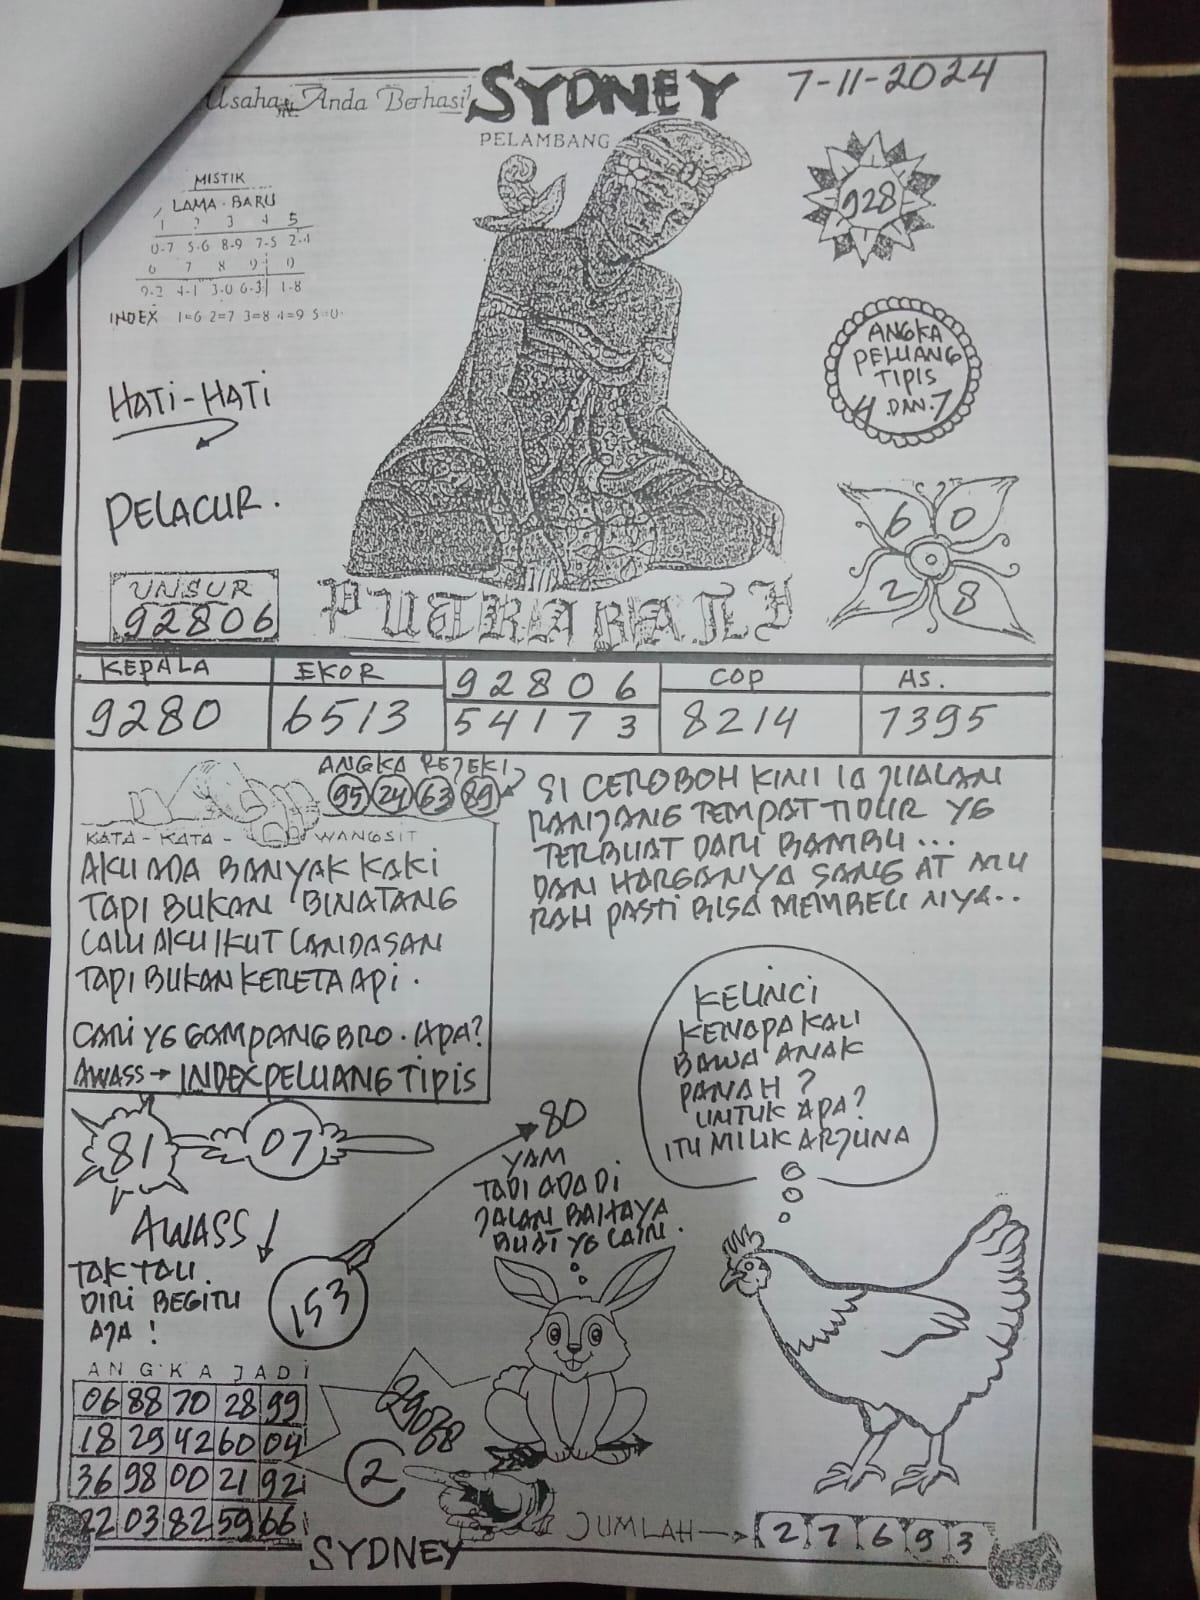 Usaha Anda Berhasil
SYDNEY
7-11-2024
PELAMBANG
MISTIK
LAMA - BARU
1 2 3 4 5
0-7 5-6 8-9 7-5 2-4
6 7 8 9 0
9-2 4-1 3-0 6-3 1-8
INDEX 1=6 2=7 3=8 4=9 5=0
928
ANGKA
PELUANG
TIPIS
4 DAN 7
HATI-HATI
PELACUR.
6 0
2 8
UNSUR
92806
PUTRA BALI
KEPALA EKOR 92806 COP AS.
9280 6513 54173 8214 7395
ANGKA REJEKI
95 24 63 89
KATA-KATA-WANGSIT
AKU ADA BANYAK KAKI
TAPI BUKAN BINATANG
LALU AKU IKUT LANDASAN
TAPI BUKAN KERETA API.
CARI YG GAMPANG BRO. APA?
AWASS → INDEX PELUANG TIPIS
SI CEROBOH KINI IA JUALAN
RANJANG TEMPAT TIDUR YG
TERBUAT DARI BAMBU...
DAN HARGANYA SANGAT MU
RAH PASTI BISA MEMBELI NYA..
KELINCI
KENAPA KALI
BAWA ANAK
PANAH?
UNTUK APA?
ITU MILIK ARJUNA
81 07
80
YAM
TADI ADA DI
JALAN BAHAYA
BUAT YG LAIN.
AWASS
TAK TALI
DIRI BEGITU
AJA!
153
ANGKA JADI
06 88 70 28 99
18 29 42 60 04
36 98 00 21 92
22 03 82 59 66
2
SYDNEY
JUMLAH → 2 7 6 9 3